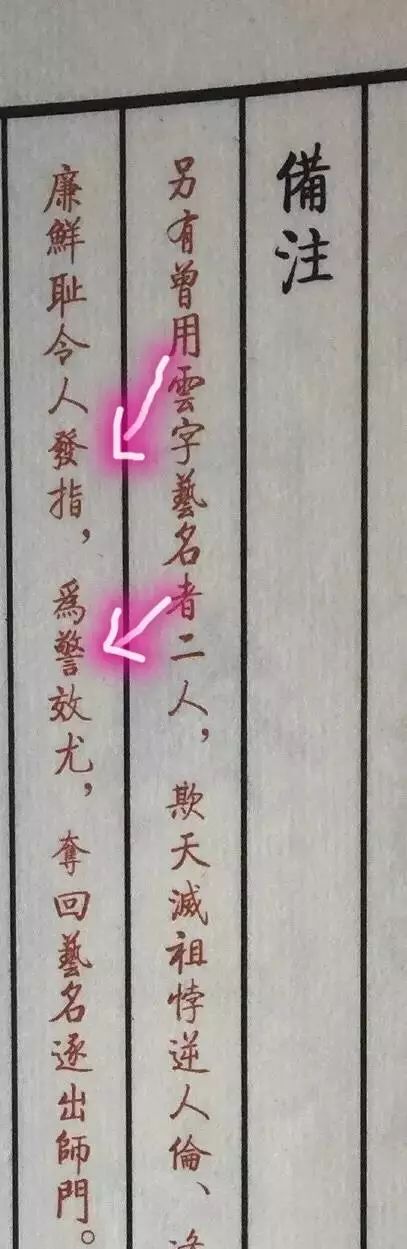 備注
另有曾用雲字藝名者二人，欺天滅祖悖逆人倫、
廉鮮恥令人發指，為警效尤，奪回藝名逐出師門。